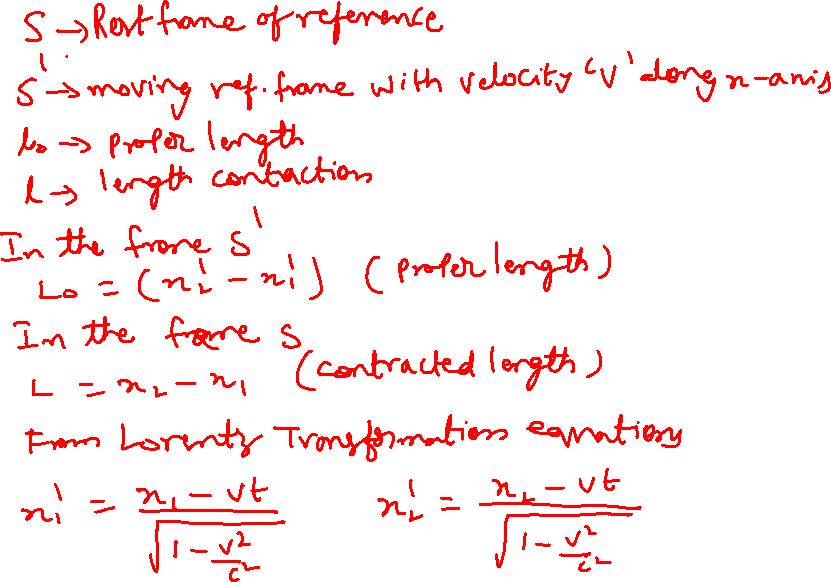 S → Rest frame of reference
S' → moving ref. frame with velocity 'v' along x-axis
l₀ → proper length
l → length contraction
In the frame S'
L₀ = (x₂' - x₁') (proper length)
In the frame S
L = x₂ - x₁ (contracted length)
From Lorentz Transformations equations
x₁' = (x₁ - vt)/√(1 - v²/c²) x₂' = (x₂ - vt)/√(1 - v²/c²)